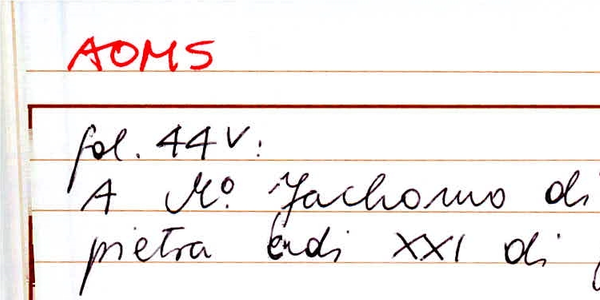 AOMS
fol. 44v:
A Mº. Jachomo di
pietra endi XXI di